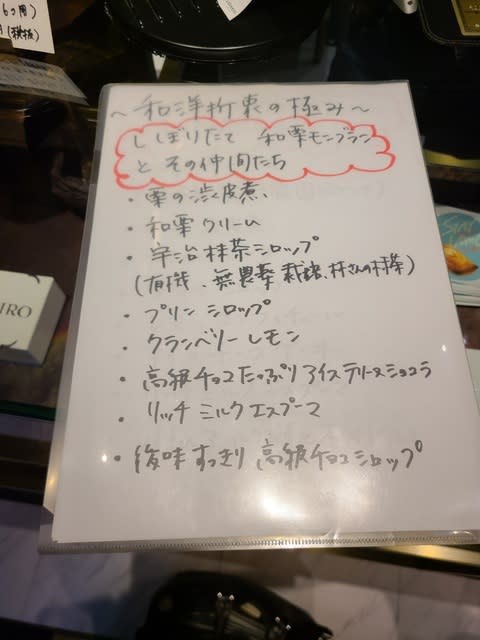 6つ用)
(税抜)
〜和洋折衷の極み〜
しぼりたて 和栗モンブラン
と その仲間たち
・栗の渋皮煮
・和栗クリーム
・宇治抹茶シロップ
(有機、無農薬栽培、
・プリンシロップ
・クランベリーレモン
・高級チョコたっぷりアイステリーヌショコラ
・リッチミルクエスプーマ
・後味すっきり 高級チョコシロップ
IRO